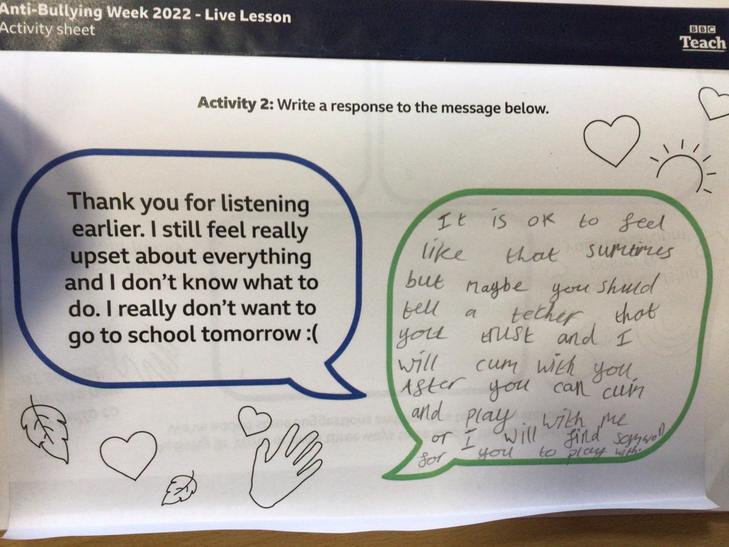 Anti-Bullying Week 2022 - Live Lesson
Activity sheet
BBC
Teach
Activity 2: Write a response to the message below.
Thank you for listening
earlier. I still feel really
upset about everything
and I don't know what to
do. I really don't want to
go to school tomorrow :(
It is ok to feel
like that sumtimes
but maybe you shuld
tell a tetcher that
you trust and I
will cum with you
After you can cum
and play with me
or I will find
for you to play with.